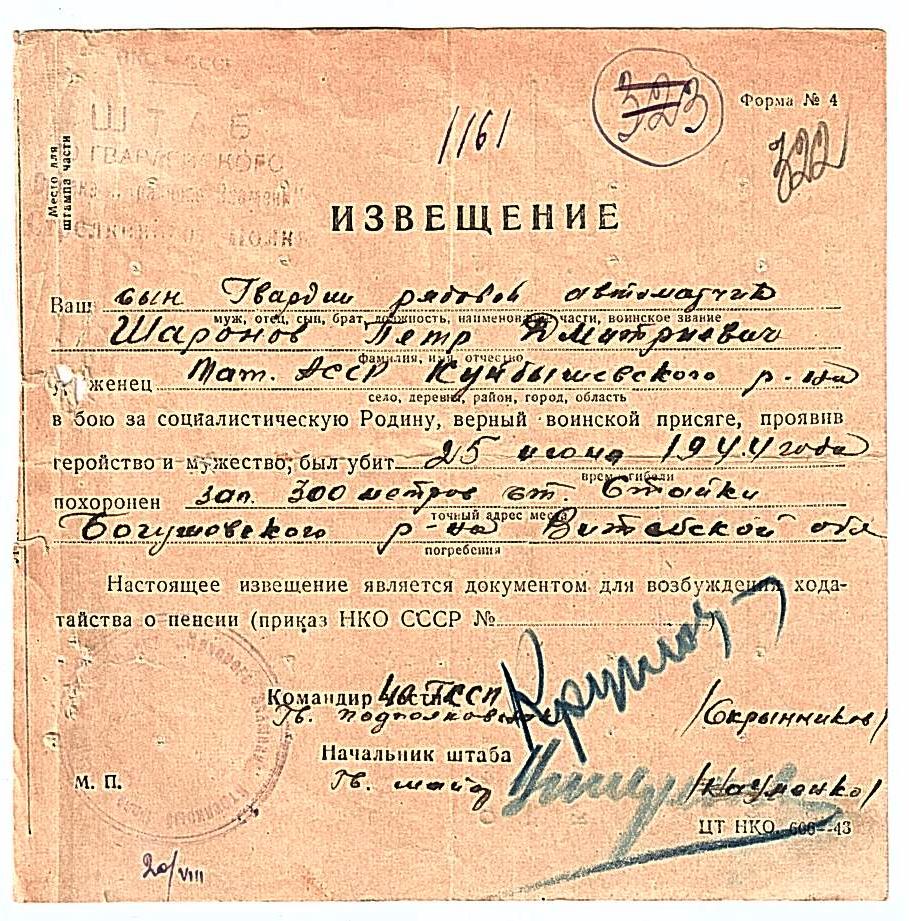 НКО СССР
ШТАБ
ГВАРДЕЙСКОГО
Место для
штампа части
1161
323
Форма № 4
322
ИЗВЕЩЕНИЕ
Ваш сын Гвардии рядовой автоматчик
муж, отец, сын, брат, должность, наименование части, воинское звание
Шаронов Петр Дмитриевич
фамилия, имя, отчество
женец Тат. АССР Куйбышевского р-на
село, деревня, район, город, область
в бою за социалистическую Родину, верный воинской присяге, проявив
геройство и мужество, был убит 25 июня 1944 года
время гибели
похоронен зап. 300 метров ст. Стайки
точный адрес места
Богушовского р-на Витебской обл
погребения
Настоящее извещение является документом для возбуждения хода-
тайства о пенсии (приказ НКО СССР №)
Командир части
Гв. подполковник /Скрынников/
Начальник штаба
Гв. майор /Науменко/
М. П.
ЦТ НКО. 666—43
20/VIII